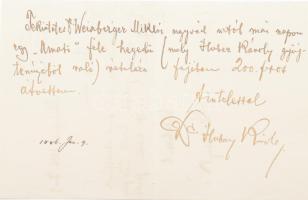 Tekintetes Weinberger Miklós ügyvéd úrtól mai napon
egy "Amati" féle hegedű (mely Huber Károly gyűj-
teményéből való) vételára fejében 200 frtot
átvettem.
tisztelettel
Hubay Jenő
1886. Jan. 9.